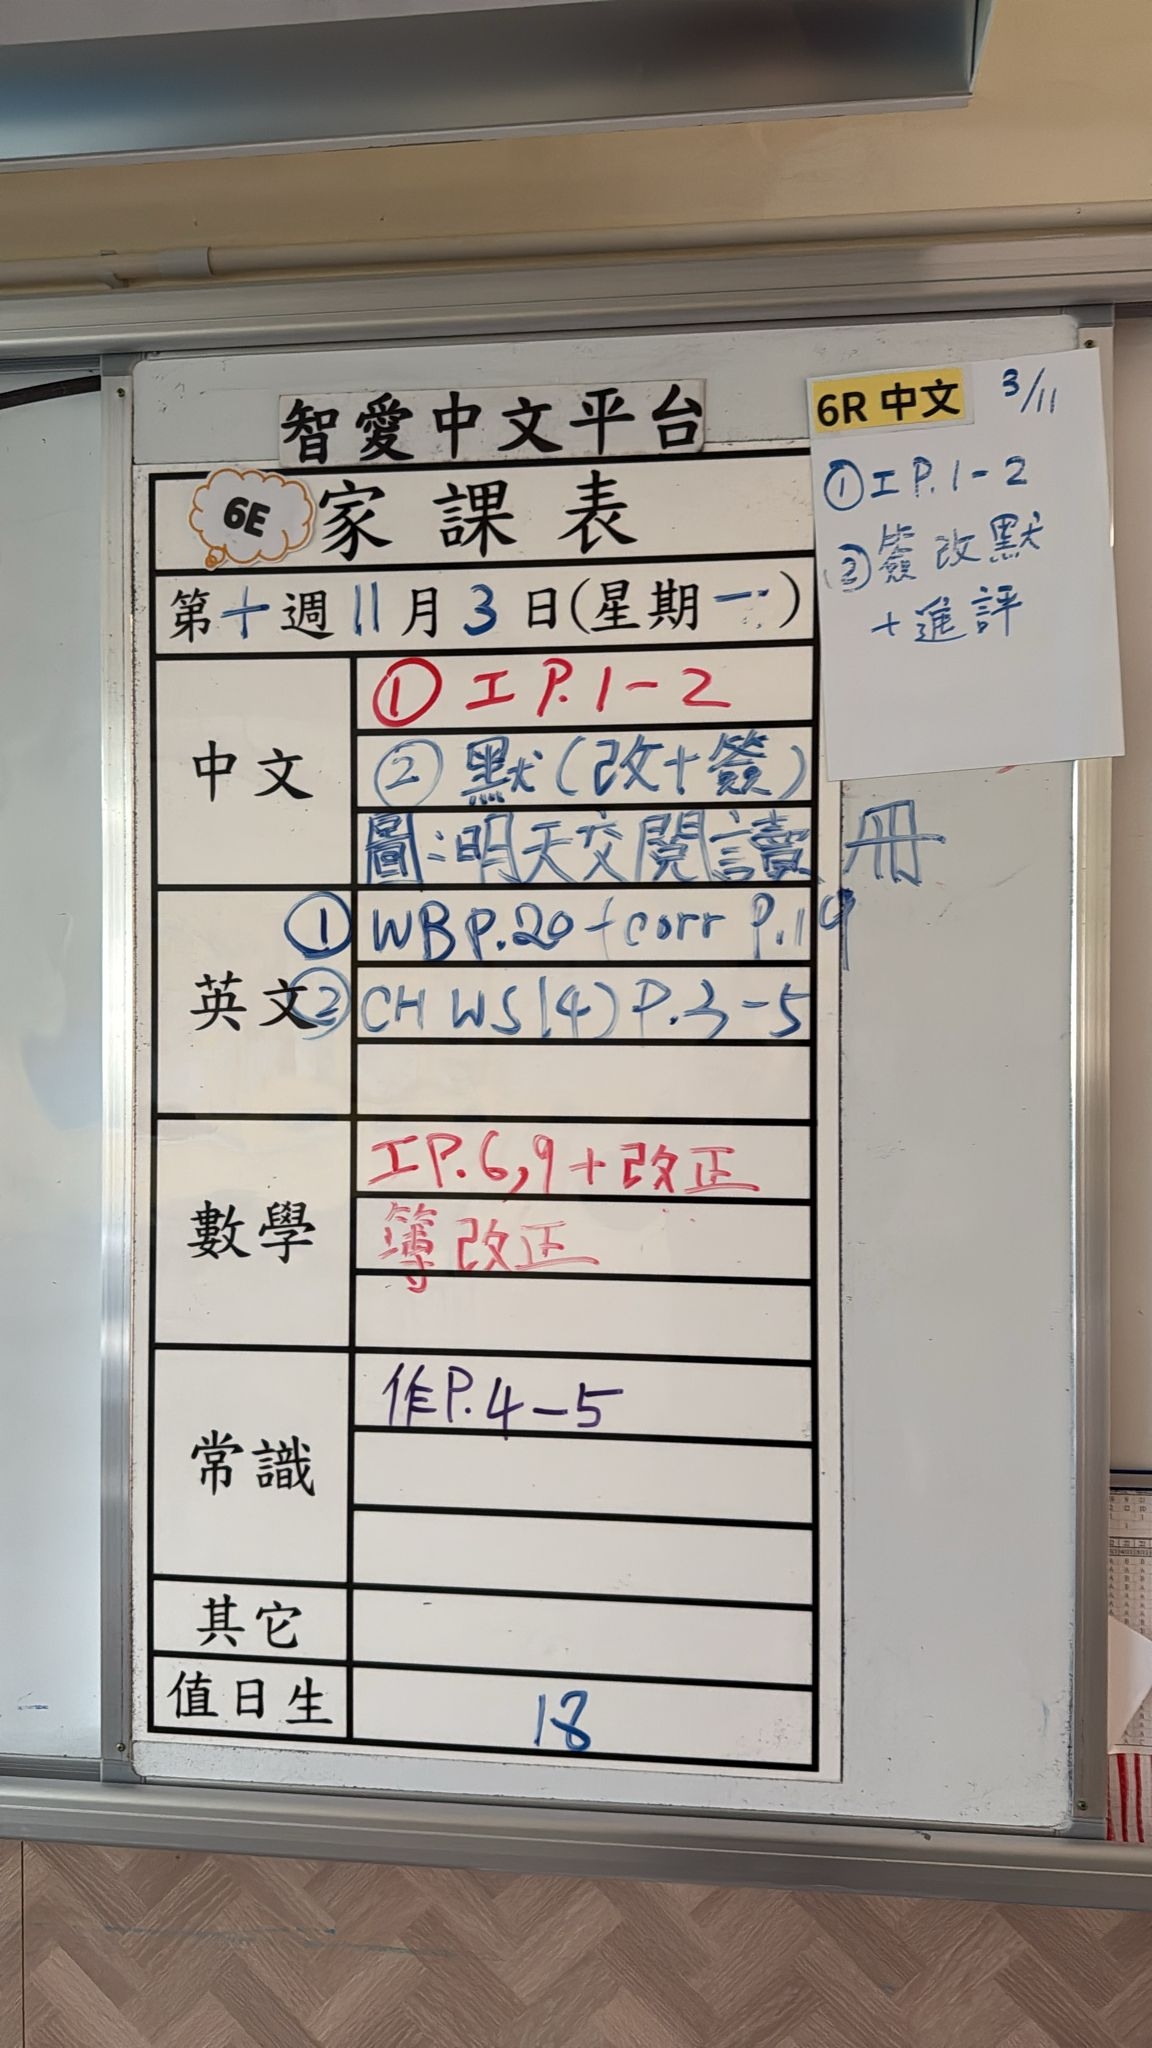 智愛中文平台
6E 家課表
第十週11月3日(星期一)
中文
① 工 P.1-2
② 默(改+簽)
圖:明天交閱讀冊
英文
① WB P.20 + corr P.19
② CH WS(4) P.3-5
數學
工P.6,9+改正
簿改正
常識
作P.4-5
其它
值日生
18
6R 中文 3/11
① 工 P.1-2
② 簽改默
+進評